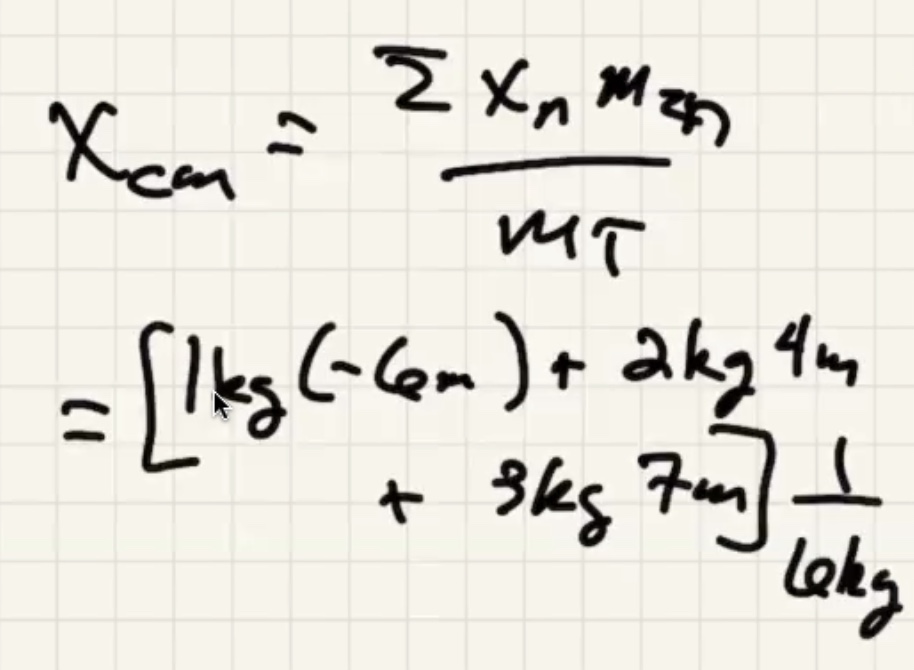 X_cm = Σ x_n m_n
m_T
= [1kg(-6m) + 2kg 4m
+ 3kg 7m] 1
6kg